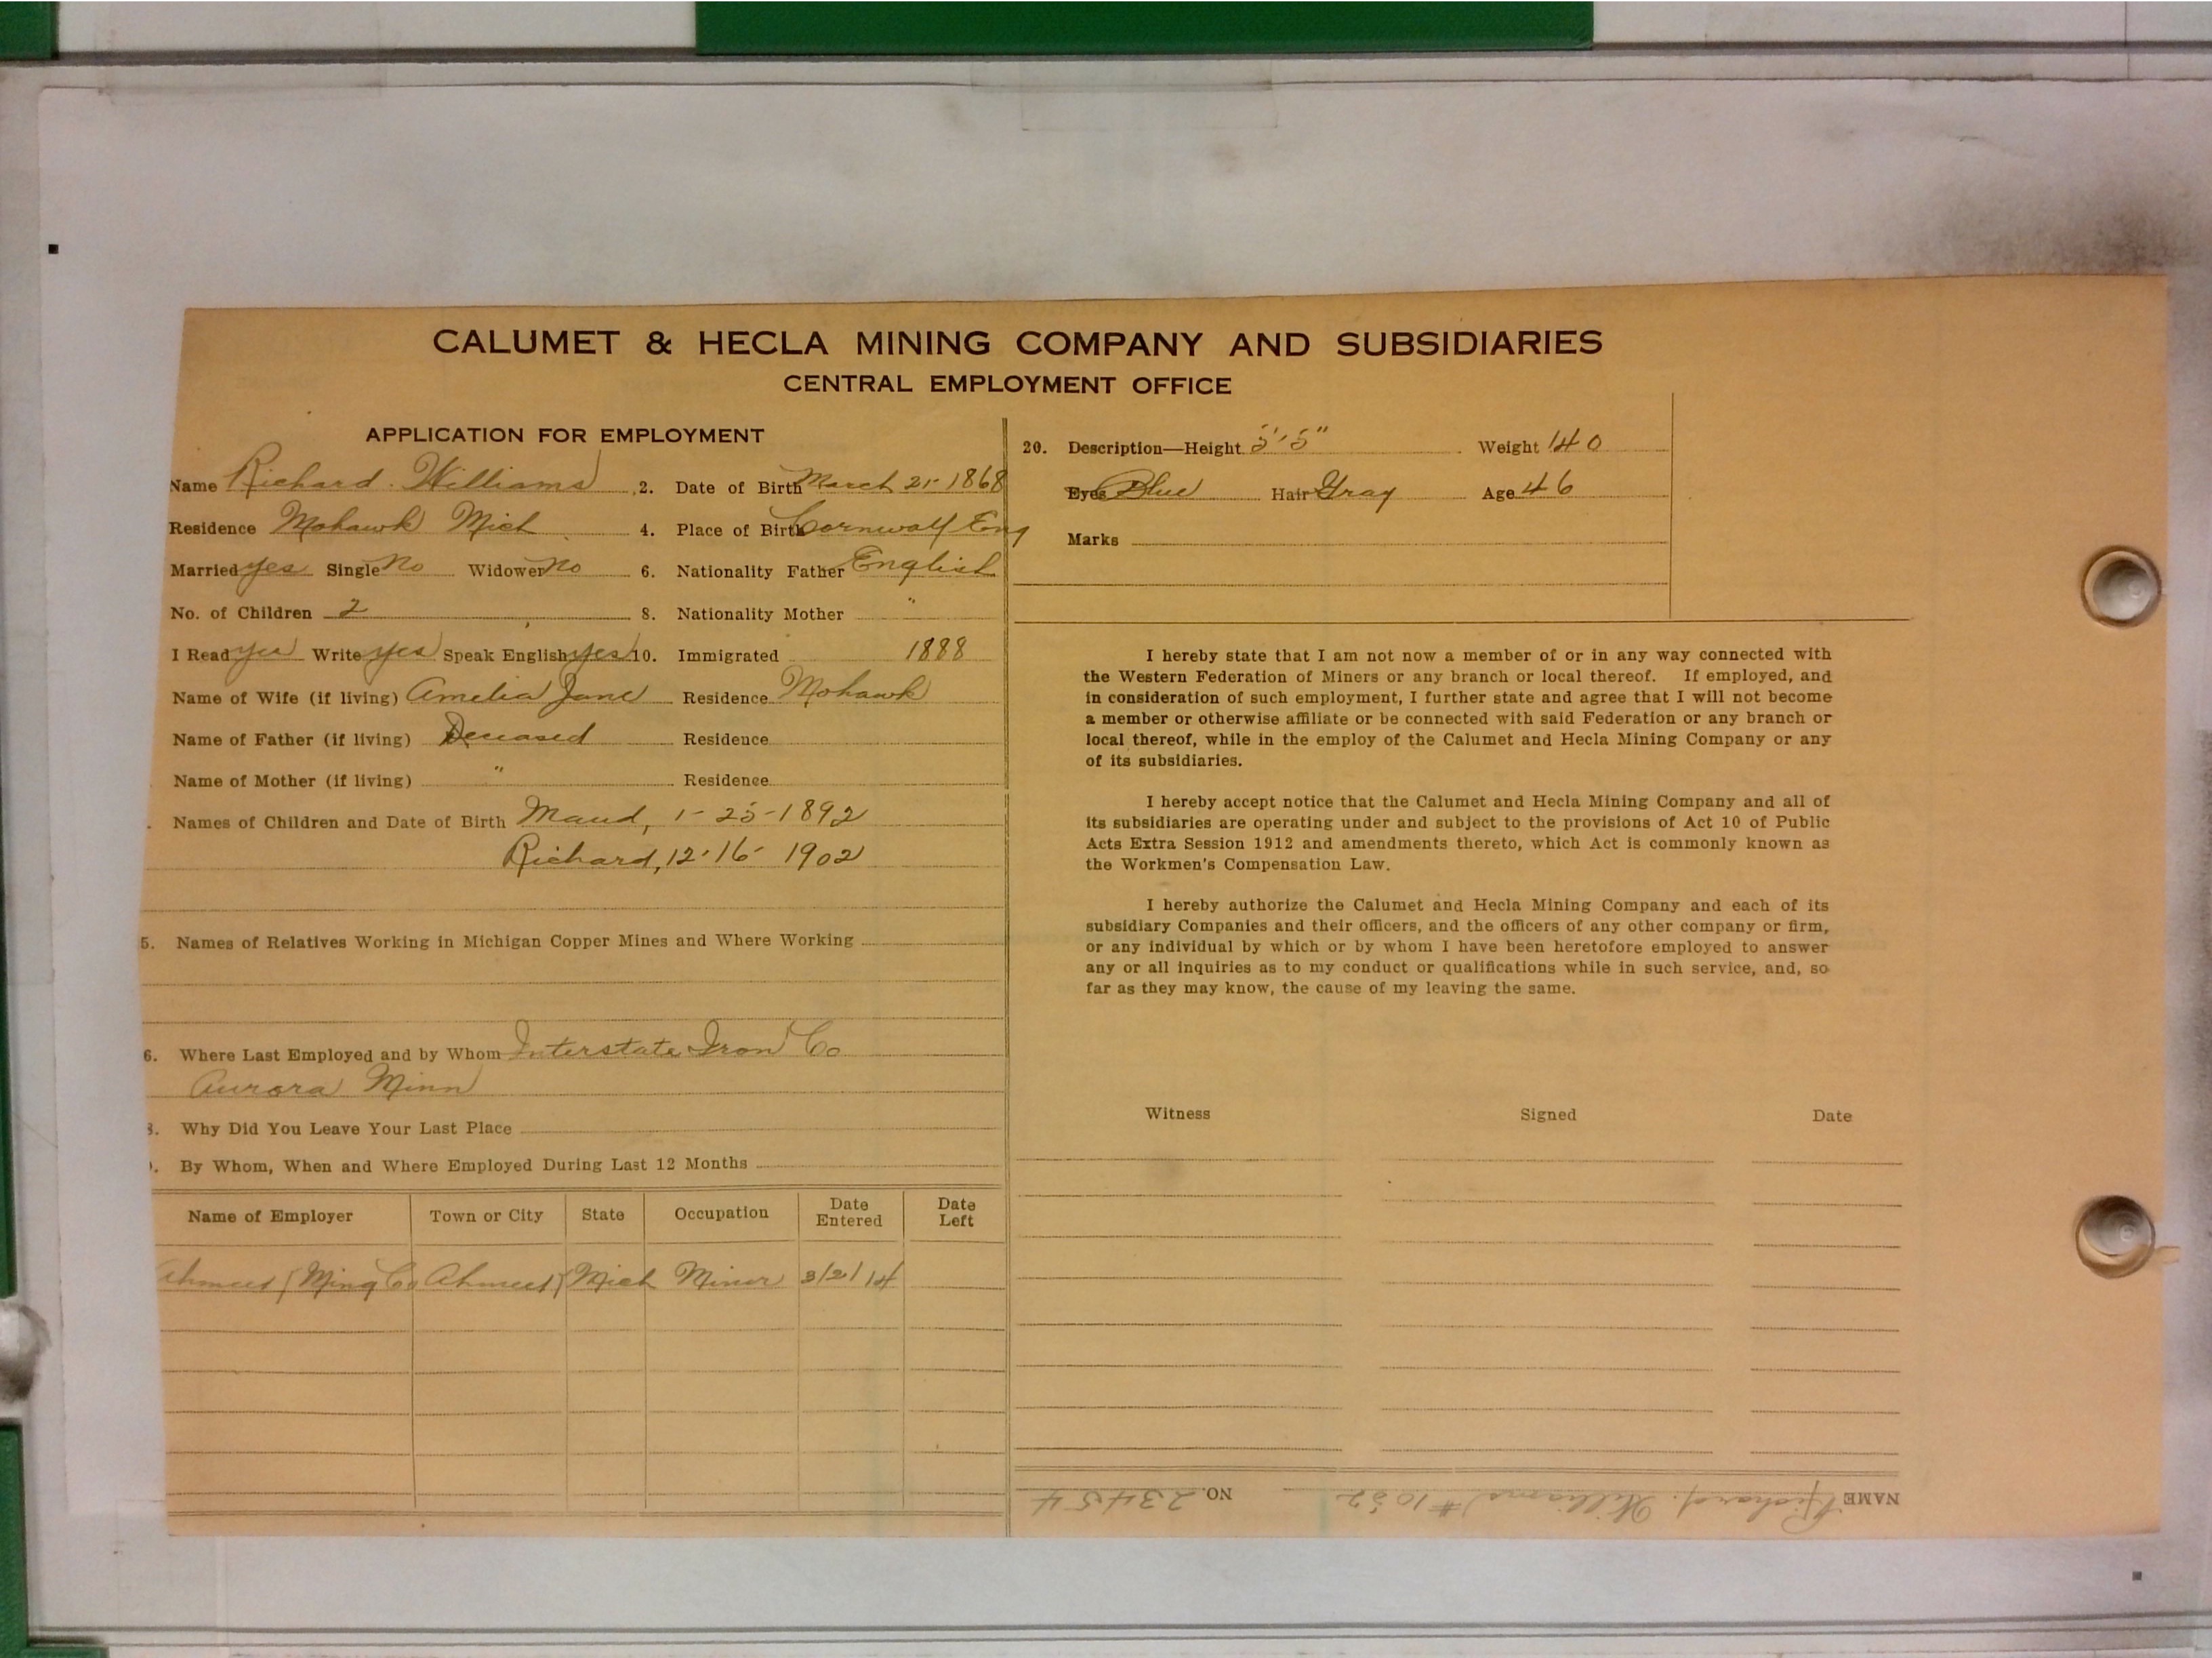 CALUMET & HECLA MINING COMPANY AND SUBSIDIARIES
CENTRAL EMPLOYMENT OFFICE
APPLICATION FOR EMPLOYMENT
Name Richard Williams 2. Date of Birth March 21-1868
Residence Mohawk Mich 4. Place of Birth Cornwall Eng
Married yes Single No Widower No 6. Nationality Father English
No. of Children 2 8. Nationality Mother "
I Read yes Write yes Speak English yes 10. Immigrated 1888
Name of Wife (if living) Amelia Jane Residence Mohawk
Name of Father (if living) Deceased Residence
Name of Mother (if living) " Residence
Names of Children and Date of Birth Maud, 1-25-1892
Richard, 12-16-1902
5. Names of Relatives Working in Michigan Copper Mines and Where Working
6. Where Last Employed and by Whom Interstate Iron Co
Aurora Minn
8. Why Did You Leave Your Last Place
. By Whom, When and Where Employed During Last 12 Months
Name of Employer Town or City State Occupation Date Entered Date Left
Ahmeek Ming Co Ahmeek Mich Miner 3/2/14
20. Description—Height 5'5" Weight 140
Eyes Blue Hair Gray Age 46
Marks
I hereby state that I am not now a member of or in any way connected with
the Western Federation of Miners or any branch or local thereof. If employed, and
in consideration of such employment, I further state and agree that I will not become
a member or otherwise affiliate or be connected with said Federation or any branch or
local thereof, while in the employ of the Calumet and Hecla Mining Company or any
of its subsidiaries.
I hereby accept notice that the Calumet and Hecla Mining Company and all of
its subsidiaries are operating under and subject to the provisions of Act 10 of Public
Acts Extra Session 1912 and amendments thereto, which Act is commonly known as
the Workmen's Compensation Law.
I hereby authorize the Calumet and Hecla Mining Company and each of its
subsidiary Companies and their officers, and the officers of any other company or firm,
or any individual by which or by whom I have been heretofore employed to answer
any or all inquiries as to my conduct or qualifications while in such service, and, so
far as they may know, the cause of my leaving the same.
Witness Signed Date
NAME Richard Williams #1052 NO. 23454